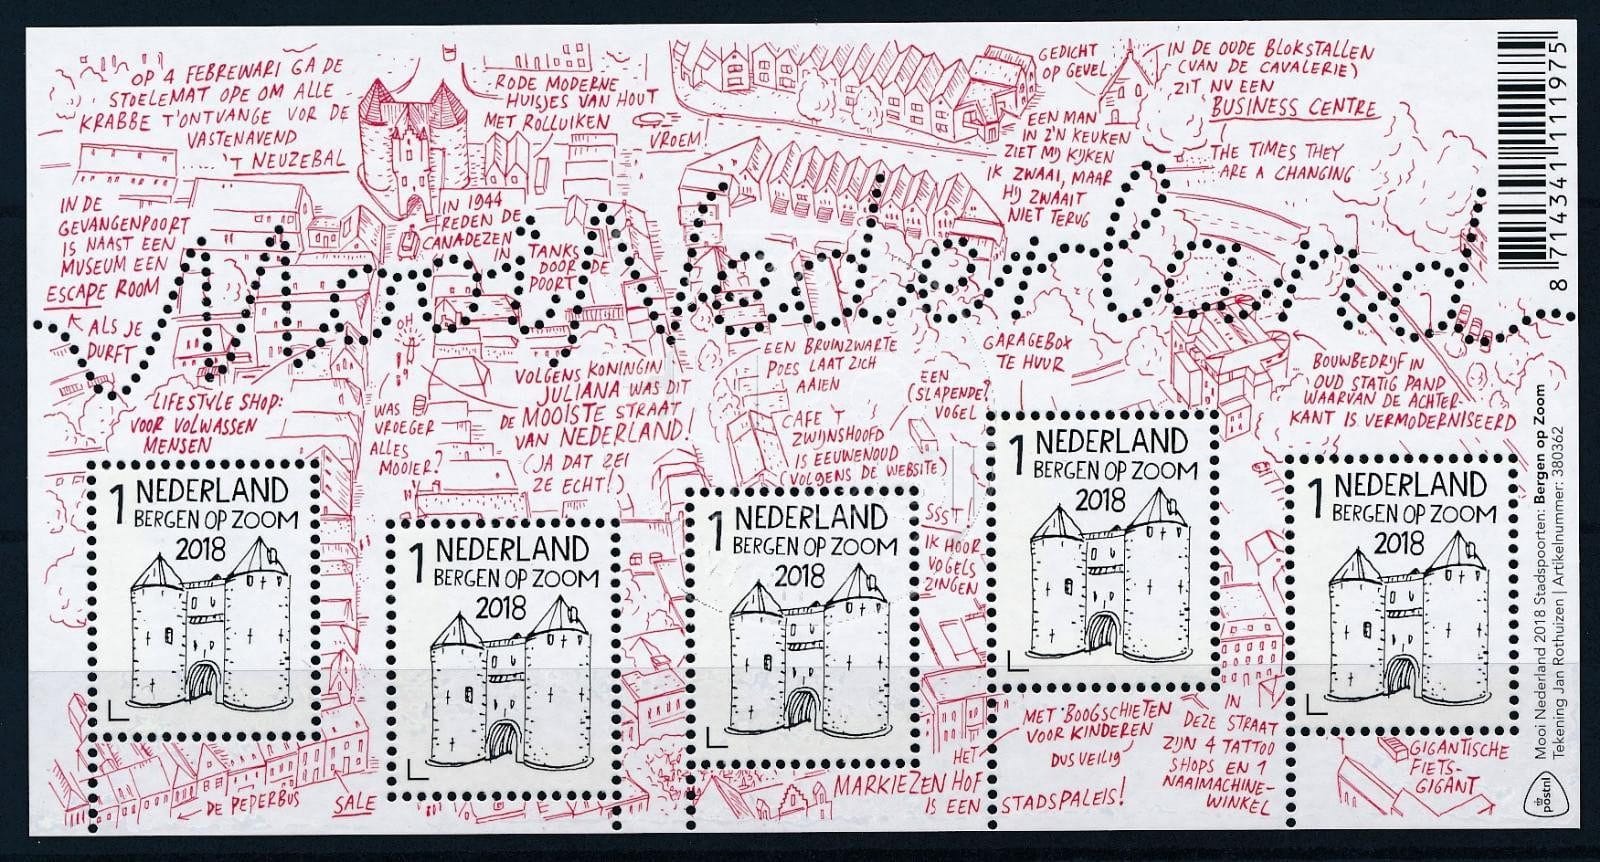 OP 4 FEBREWARI GA DE
STOELEMAT OPE OM ALLE
KRABBE T'ONTVANGE VOR DE
VASTENAVEND
'T NEUZEBAL
RODE MODERNE
HUISJES VAN HOUT
MET ROLLUIKEN
VROEM!
GEDICHT
OP GEVEL
IN DE OUDE BLOKSTALLEN
(VAN DE CAVALERIE)
ZIT NU EEN
BUSINESS CENTRE
EEN MAN
IN Z'N KEUKEN
ZIET MIJ KIJKEN
IK ZWAAI, MAAR
HIJ ZWAAIT
NIET TERUG
THE TIMES THEY
ARE A CHANGING
8 714341 111975
IN DE
GEVANGENPOORT
IS NAAST EEN
MUSEUM EEN
ESCAPE ROOM
ALS JE
DURFT
IN 1944
REDEN DE
CANADEZEN
IN
TANKS
DOOR DE
POORT
Mooi Nederland
OH
LIFESTYLE SHOP:
VOOR VOLWASSEN
MENSEN
WAS
VROEGER
ALLES
MOOIER?
VOLGENS KONINGIN
JULIANA WAS DIT
DE MOOISTE STRAAT
VAN NEDERLAND!
(JA DAT ZEI
ZE ECHT!)
EEN BRUINZWARTE
POES LAAT ZICH
AAIEN
CAFE 'T
ZWIJNSHOOFD
IS EEUWENOUD
(VOLGENS DE WEBSITE)
EEN
(SLAPENDE?)
VOGEL
GARAGEBOX
TE HUUR
BOUWBEDRIJF IN
OUD STATIG PAND
WAARVAN DE ACHTER-
KANT IS VERMODERNISEERD
SSST
IK HOOR
VOGELS
ZINGEN
1 NEDERLAND
BERGEN OP ZOOM
2018
1 NEDERLAND
BERGEN OP ZOOM
2018
1 NEDERLAND
BERGEN OP ZOOM
2018
1 NEDERLAND
BERGEN OP ZOOM
2018
1 NEDERLAND
BERGEN OP ZOOM
2018
DE PEPERBUS
SALE
HET
MARKIEZENHOF
IS EEN
STADSPALEIS!
MET BOOGSCHIETEN
VOOR KINDEREN
DUS VEILIG
IN
DEZE STRAAT
ZIJN 4 TATTOO
SHOPS EN 1
NAAIMACHINE-
WINKEL
GIGANTISCHE
FIETS-
GIGANT
Mooi Nederland 2018 Stadspoorten: Bergen op Zoom
Tekening Jan Rothuizen | Artikelnummer: 380362
postnl